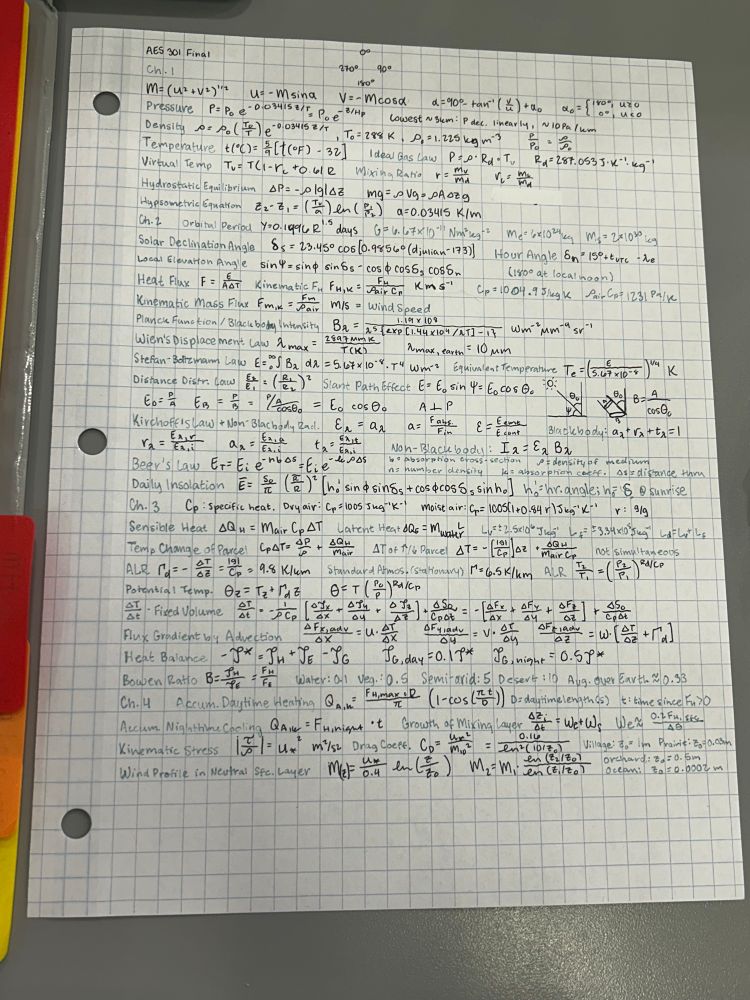 AES 301 Final
0°
Ch. 1
270° 90°
180°
M=(u²+v²)^1/2 u=-Msinα V=-Mcosα α=90°-tan⁻¹(v/u)+α₀ α₀={180°, u≥0 0°, u<0
Pressure P=P₀e^-0.03415z/T=P₀e^-z/Hp Lowest ≈3km: P dec. linearly, ≈10Pa/km
Density ρ=ρ₀(T₀/T)e^-0.03415z/T, T₀=288K, ρ₀=1.225kg m⁻³ P/P₀=ρ/ρ₀
Temperature t(°C)=5/9[t(°F)-32] Ideal Gas Law P=ρ·Rd·Tv Rd=287.053J·K⁻¹·kg⁻¹
Virtual Temp Tv=T(1-rL+0.61R Mixing Ratio r=mv/md rL=mL/md
Hydrostatic Equilibrium ΔP=-ρ|g|Δz mg=ρVg=ρAΔzg
Hypsometric Equation z₂-z₁=(Tv/a)ln(P₁/P₂) a=0.03415 K/m
Ch. 2 Orbital Period Y=0.1996R^1.5 days G=6.67×10⁻¹¹Nm²kg⁻² Me=6×10²⁴kg Ms=2×10³⁰kg
Solar Declination Angle δs=23.45°cos[0.9856°(djulian-173)] Hour Angle δn=15°·tUTC-λe
Local Elevation Angle sinΨ=sinφ sinδs-cosφ cosδs cosδn (180° at local noon)
Heat Flux F=E/AΔT Kinematic FH FH,K=FH/ρair Cp K m s⁻¹ Cp=1004.9J/kgK ρairCp=1231 Pa/K
Kinematic Mass Flux Fm,K=Fm/ρair m/s = Wind Speed
Planck Function/Blackbody Intensity Bλ=1.19×10⁸/λ⁵{exp[1.44×10⁴/λT]-1} Wm⁻²μm⁻¹sr⁻¹
Wien's Displacement Law λmax=2897μmK/T(K) λmax,earth=10μm
Stefan-Boltzmann Law E=₀∫^∞ Bλ dλ=5.67×10⁻⁸·T⁴ Wm⁻² Equivalent Temperature Te=(E/5.67×10⁻⁸)^1/4 K
Distance Distr. Law E₂/E₁=(R₁/R₂)² Slant Path Effect E=E₀sinΨ=E₀cosθ₀
E₀=P/A EB=P/B=P/A/cosθ₀=E₀cosθ₀ A⊥P B=A/cosθ₀
Kirchoff's Law + Non-Blackbody Rad. Ελ=aλ a=Fabs/Fin ε=Eemit/Econt Blackbody: aλ+rλ+tλ=1
rλ=Eλ,r/Eλ,i aλ=Eλ,a/Eλ,i tλ=Eλ,t/Eλ,i Non-Blackbody: Iλ=ελBλ
Beer's Law ET=Ei e^-nbΔs=Ei e^-kρΔs b=absorption cross-section ρ=density of medium
n=number density k=absorption coeff. Δs=distance thru
Daily Insolation E̅=S₀/π(a̅/R)²[h₀' sinφ sinδs+cosφ cosδs sinh₀] h₀'=hr. angle in @ sunrise
Ch. 3 Cp: Specific heat. Dry air: Cp=1005Jkg⁻¹K⁻¹ Moist air: Cp=1005(1+0.84r)Jkg⁻¹K⁻¹ r: g/g
Sensible Heat ΔQH=Mair CpΔT Latent Heat ΔQE=Mwater L Lv=±2.5×10⁶Jkg⁻¹ Lf=±3.34×10⁵Jkg⁻¹ Ld=Lf+Lv
Temp Change of Parcel CpΔT=ΔP/ρ+ΔQH/mair ΔT of ↑/↓ Parcel ΔT=-[|g|/Cp]Δz+ΔQH/mairCp not simultaneous
ALR Γd=-ΔT/Δz=|g|/Cp=9.8K/km Standard Atmos. (stationary) Γ=6.5K/km ALR T₂/T₁=(P₂/P₁)^Rd/Cp
Potential Temp. θz=Tz+Γdz θ=T(P₀/P)^Rd/Cp
ΔT/Δt-Fixed Volume ΔT/Δt=-1/ρCp[Δ𝓕x/Δx+Δ𝓕y/Δy+Δ𝓕z/Δz]+ΔS₀/CpΔt=-[ΔFx/Δx+ΔFy/Δy+ΔFz/Δz]+ΔS₀/CpΔt
Flux Gradient by Advection ΔFx,adv/Δx=U·ΔT/Δx ΔFy,adv/Δy=V·ΔT/Δy ΔFz,adv/Δz=W·[ΔT/Δz+Γd]
Heat Balance -𝓕*=𝓕H+𝓕E-𝓕G 𝓕G,day=0.1𝓕* 𝓕G,night=0.5𝓕*
Bowen Ratio B=𝓕H/𝓕E=FH/FE Water: 0.1 Veg.: 0.5 Semi-arid: 5 Desert: 10 Avg. over Earth≈0.33
Ch. 4 Accum. Daytime Heating QA,k=FH,max·D/π(1-cos(πt/D)) D=daytime length(s) t: time since FH>0
Accum Nighttime Cooling QAk=FH,night·t Growth of Mixing Layer Δzi/Δt=We+Ws We≈0.2FH,sfc/Δθ
Kinematic Stress |τ/ρ|=u*² m²/s² Drag Coeff. CD=u*²/M₁₀²=0.16/ln²(10/z₀) Village: z₀=1m Prairie: z₀=0.03m
Wind Profile in Neutral Sfc. Layer M(z)=u*/0.4 ln(z/z₀) M₂=M₁ ln(z₂/z₀)/ln(z₁/z₀) orchard: z₀=0.5m
ocean: z₀=0.0002m